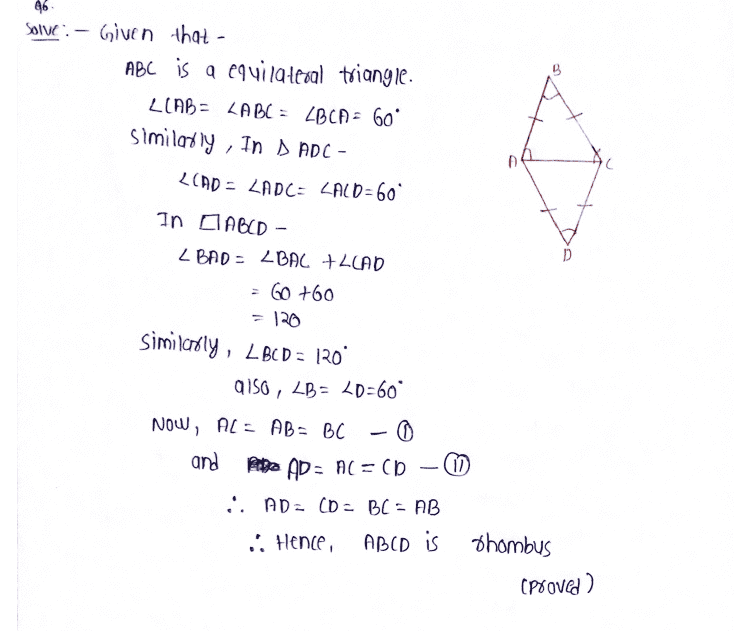 Q6.
Solve:- Given that -
ABC is a equilateral triangle.
∠CAB = ∠ABC = ∠BCA = 60°
Similarly, In Δ ADC -
∠CAD = ∠ADC = ∠ACD = 60°
In □ABCD -
∠BAD = ∠BAC + ∠CAD
= 60 + 60
= 120
Similarly, ∠BCD = 120°
also, ∠B = ∠D = 60°
Now, AC = AB = BC - (I)
and AD = AC = CD - (II)
∴ AD = CD = BC = AB
∴ Hence, ABCD is rhombus
(proved)
B
A
C
D